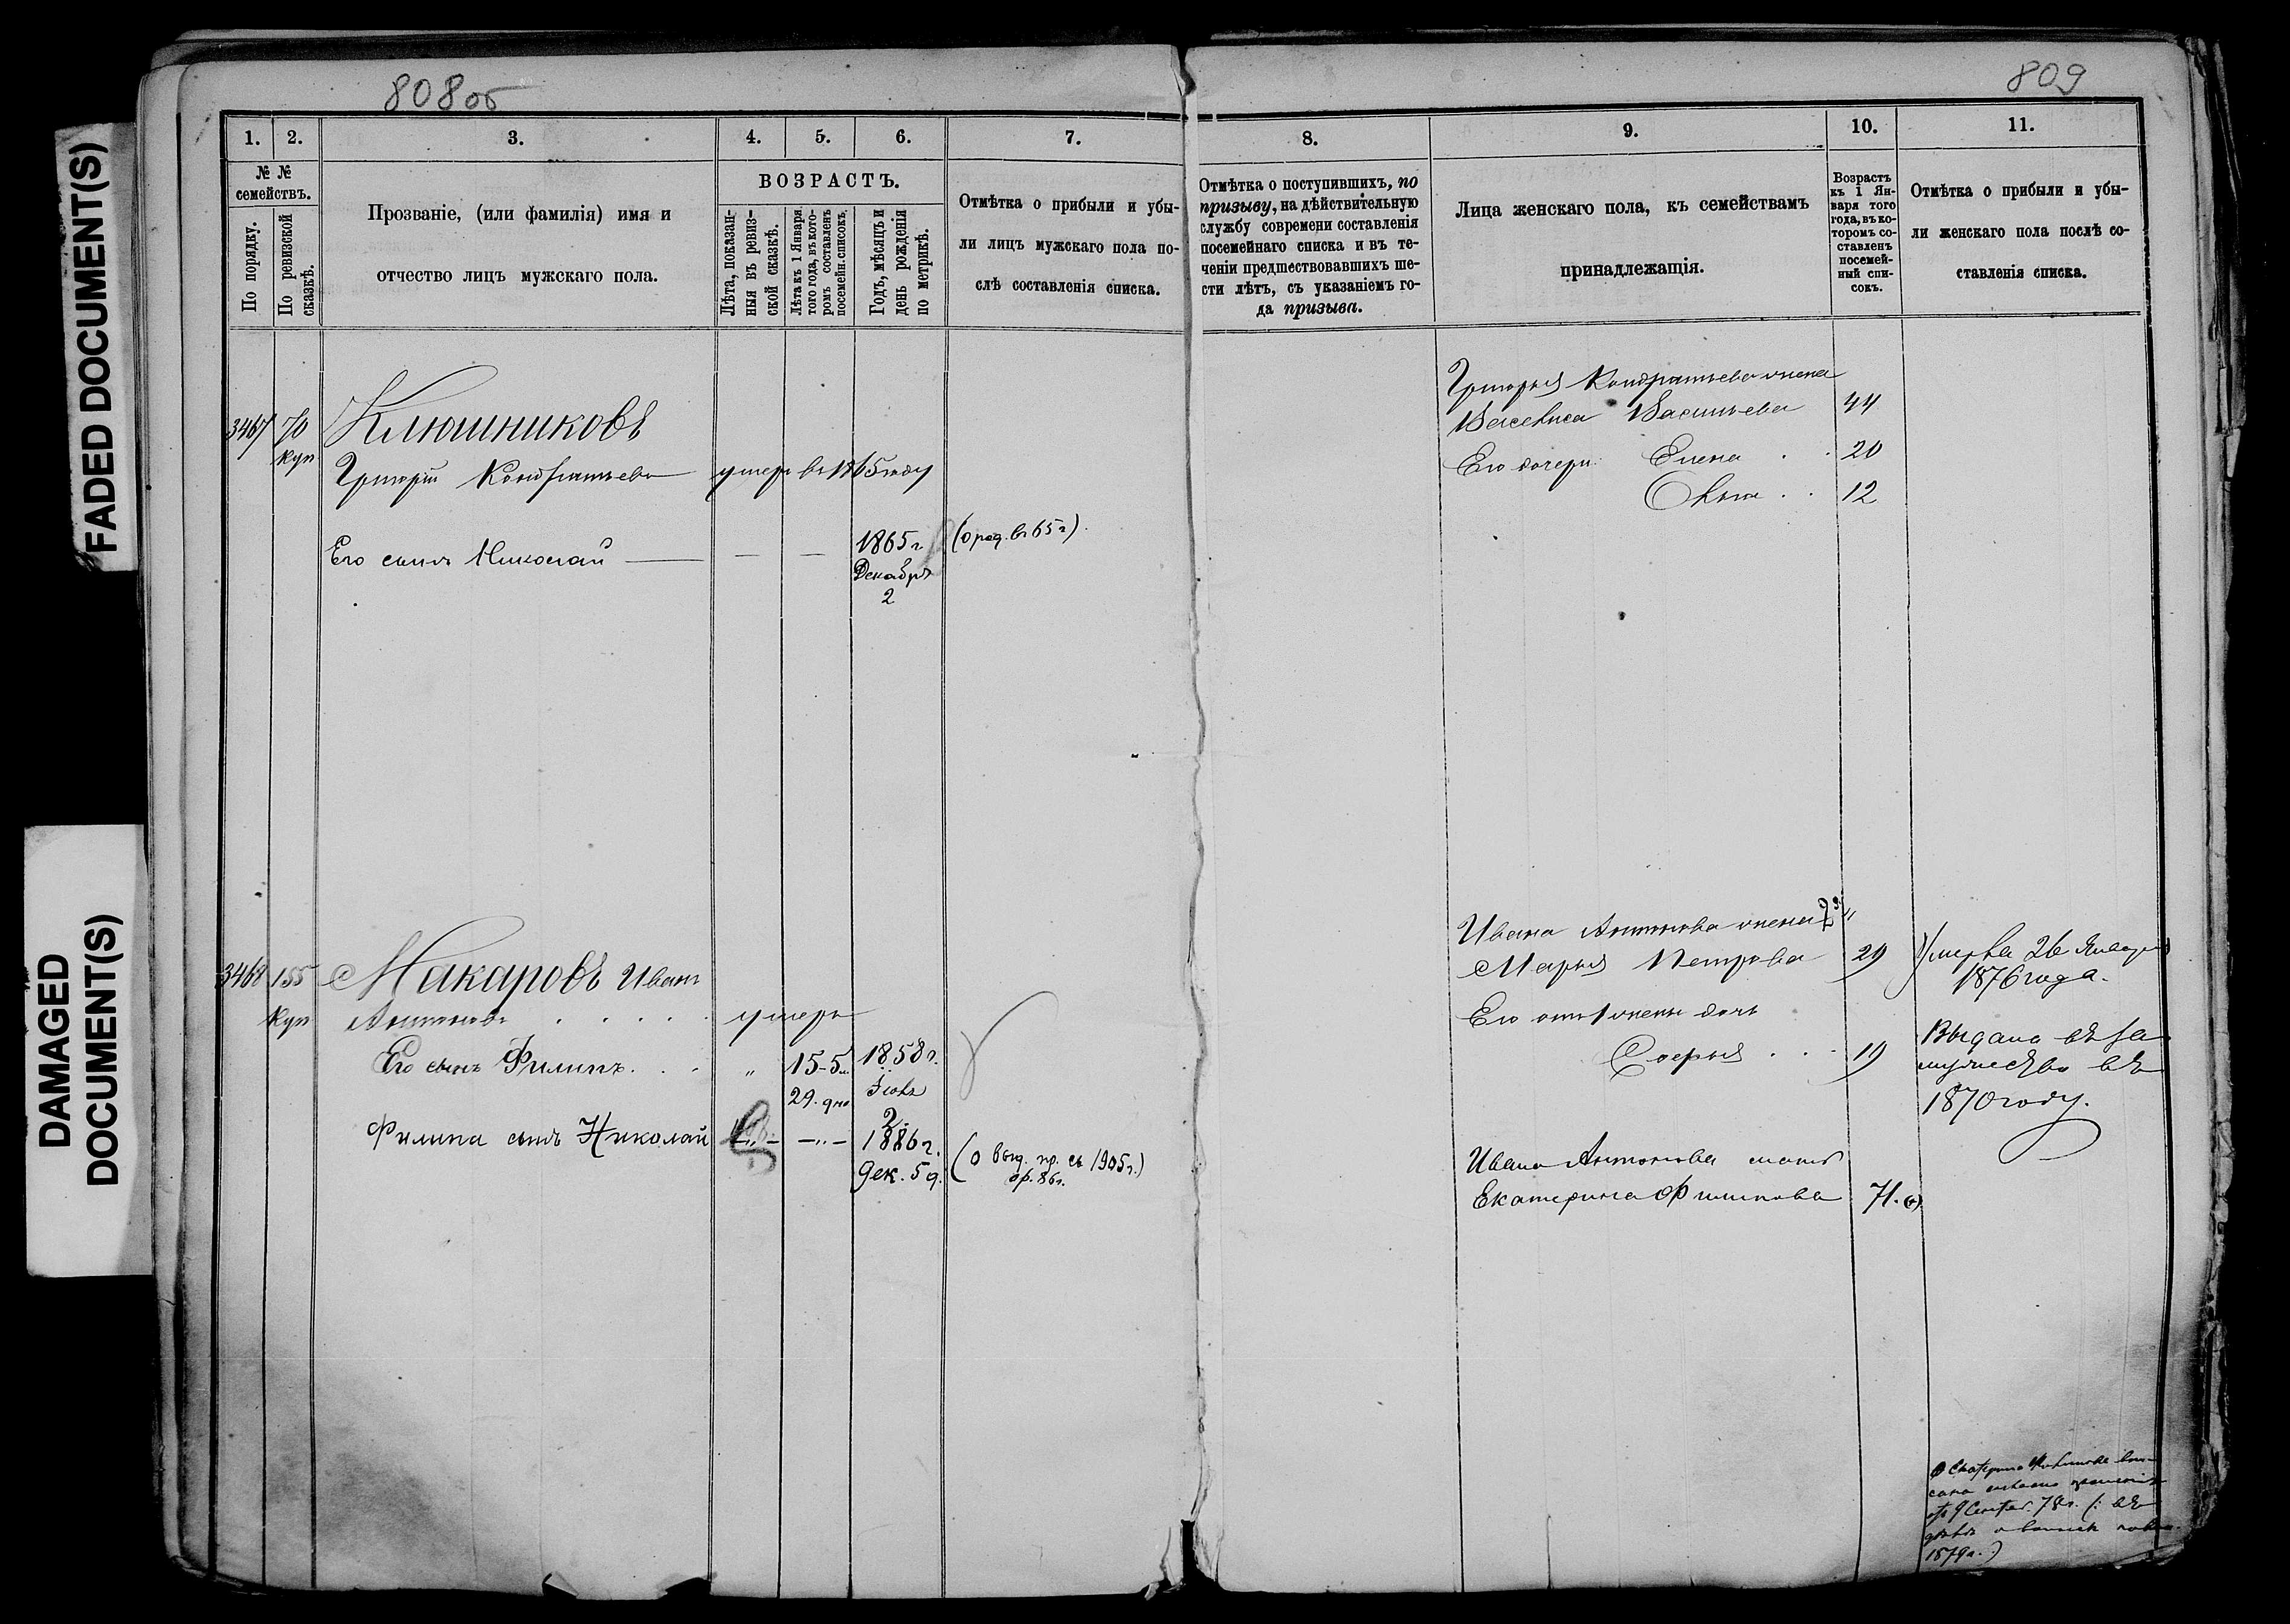 808об
809
FADED DOCUMENT(S)
DAMAGED
DOCUMENT(S)
1.
2.
3.
4.
5.
6.
7.
8.
9.
10.
11.
№ №
семействъ.
По порядку.
По ревизской
сказкѣ.
Прозваніе, (или фамилія) имя и
отчество лицъ мужскаго пола.
ВОЗРАСТЪ.
Лѣта, показан-
ныя въ ревиз-
ской сказкѣ.
Лѣта къ 1 Января
того года, въ кото-
ромъ составленъ
посемейн. списокъ.
Годъ, мѣсяцъ и
день рожденія
по метрикѣ.
Отмѣтка о прибыли и убы-
ли лицъ мужскаго пола по-
слѣ составленія списка.
Отмѣтка о поступившихъ, по
призыву, на дѣйствительную
службу современи составленія
посемейнаго списка и въ те-
ченіи предшествовавшихъ ше-
сти лѣтъ, съ указаніемъ го-
да призыва.
Лица женскаго пола, къ семействамъ
принадлежащія.
Возрастъ
къ 1 Ян-
варя того
года, въ ко-
торомъ со-
ставленъ
посемей-
ный спи-
сокъ.
Отмѣтка о прибыли и убы-
ли женскаго пола послѣ со-
ставленія списка.
3467 70 Клюшниковъ
Куп
Григорій Кондратьевъ умеръ въ 1865 году
Его сынъ Николай — — — 1865 г. (о род. въ 65 г.)
Декабря
2
Григорья Кондратьева жена
Васильева 44
Его дочери: Елена 20
12
3468 155 Макаровъ Иванъ
Куп Антоновъ умеръ
Его сынъ Филипъ 15-5 м. 1858 г.
29. дне Іюля
2.
Филипа сынъ Николай 1886 г.
дек. 5 д. (о выд. пр. съ 1905 г.)
ор. 86 г.
Ивана Антонова жена
Марья Петрова 29 Умерла 26 Января
1876 года.
Его жены дочь
Софья 19 Выдана въ за
мужество въ
1870 году.
Ивана Антонова мать
Екатерина Филипова 71.
Екатерина
1879 г.)